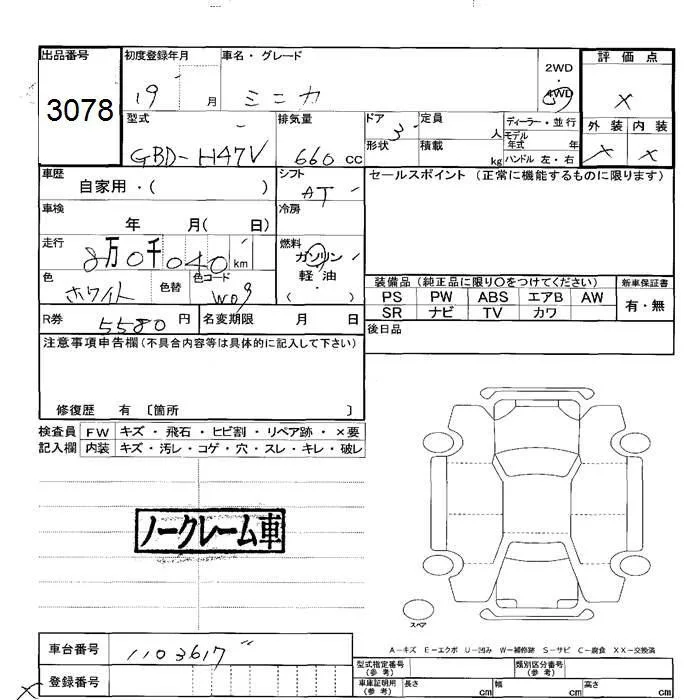 出品番号 初度登録年月 車名・グレード 2WD 4WD 評価点
3078 19 月 ミニカ ×
型式 排気量 ドア 3 定員 人 ディーラー・並行 外装 内装
GBD-H47V 660cc 形状 積載 kg モデル年式 年 × ×
ハンドル 左・右
車歴 シフト セールスポイント(正常に機能するものに限ります)
自家用・( ) AT
車検 冷房
年 月( 日)
走行 燃料
8万0千040km ガソリン
色 色替 色コード 軽油
ホワイト W09 ( )
装備品(純正品に限り〇をつけてください) 新車保証書
PS PW ABS エアB AW 有・無
SR ナビ TV カワ
R券 5580円 名変期限 月 日 後日品
注意事項申告欄(不具合内容等は具体的に記入して下さい)
修復歴 有 〔箇所 〕
検査員 FW キズ・飛石・ヒビ割・リペア跡・×要
記入欄 内装 キズ・汚レ・コゲ・穴・スレ・キレ・破レ
ノークレーム車
スペア
A−キズ E−エクボ U−凹み W−補修跡 S−サビ C−腐食 XX−交換済
車台番号 1103617
登録番号
型式指定番号(参考) 類別区分番号(参考)
車庫証明用(参考) 長さ cm 幅 cm 高さ cm
×